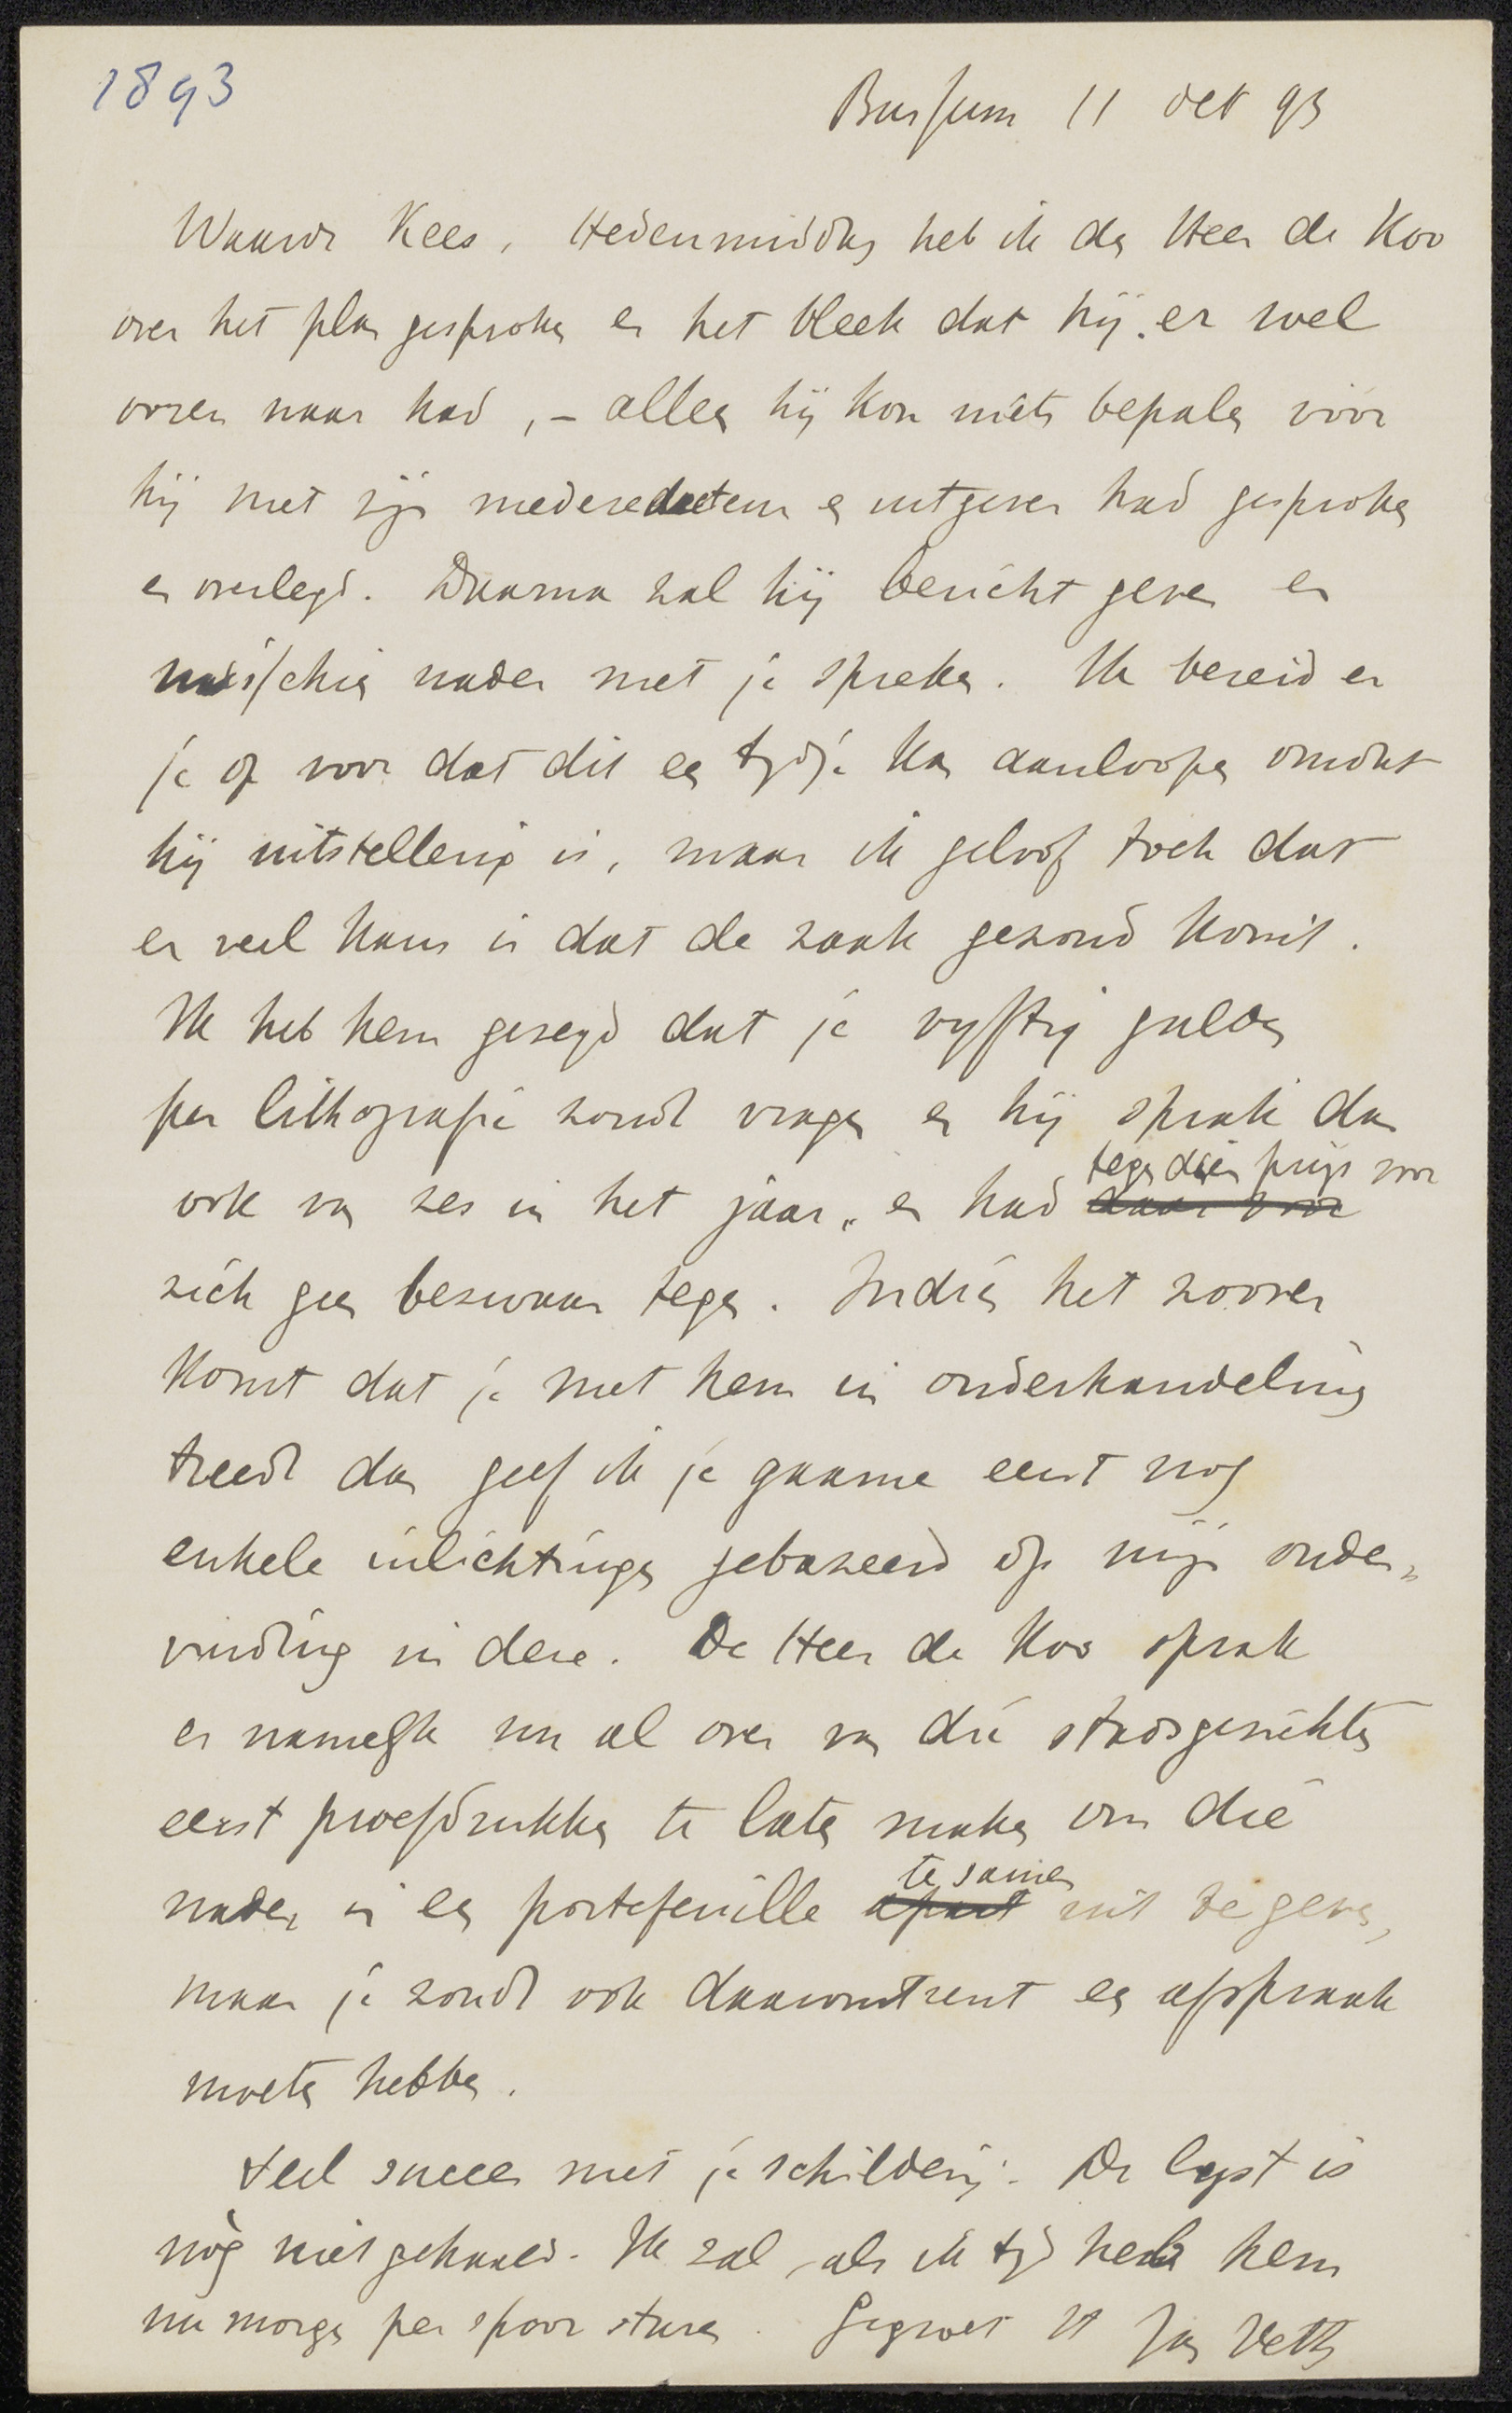 1893
Bussum 11 Oct 93
Waarde Kees, Hedenmiddag heb ik den Heer de Koo
over het plan gesproken en het bleek dat hij er wel
ooren naar had, – alleen hij kon niets bepalen vóór
hij met zijn mederedacteur en uitgever had gesproken
en overlegd. Daarna zal hij bericht geven en
misschien nader met je spreken. Ik bereid er
je op voor dat dit een tydje kan aanloopen omdat
hij uitstellerig is, maar ik geloof toch dat
er veel kans is dat de zaak gezond komt.
Ik heb hem gezegd dat je vyftig gulden
per lithografie zoudt vragen en hij sprak dan
ook van zes in het jaar, en had daar voor
tegen dien prijs voor
zich geen bezwaar tegen. Indien het zoover
komt dat je met hem in onderhandeling
treedt dan geef ik je gaarne eerst nog
enkele inlichtingen gebaseerd op mijn onder„
vinding in deze. De Heer de Koo sprak
er namelyk nu al over van die stadsgezichten
eerst proefdrukken te laten maken om die
nader in een portefeuille apart uit te geven,
te samen
maar je zoudt ook daaromtrent een afspraak
moeten hebben.
Veel succes met je schilderij. De lyst is
nòg niet gehaald. Ik zal, als ik tyd heb hem
nu morgen per spoor sturen. Gegroet tt Jan Veth